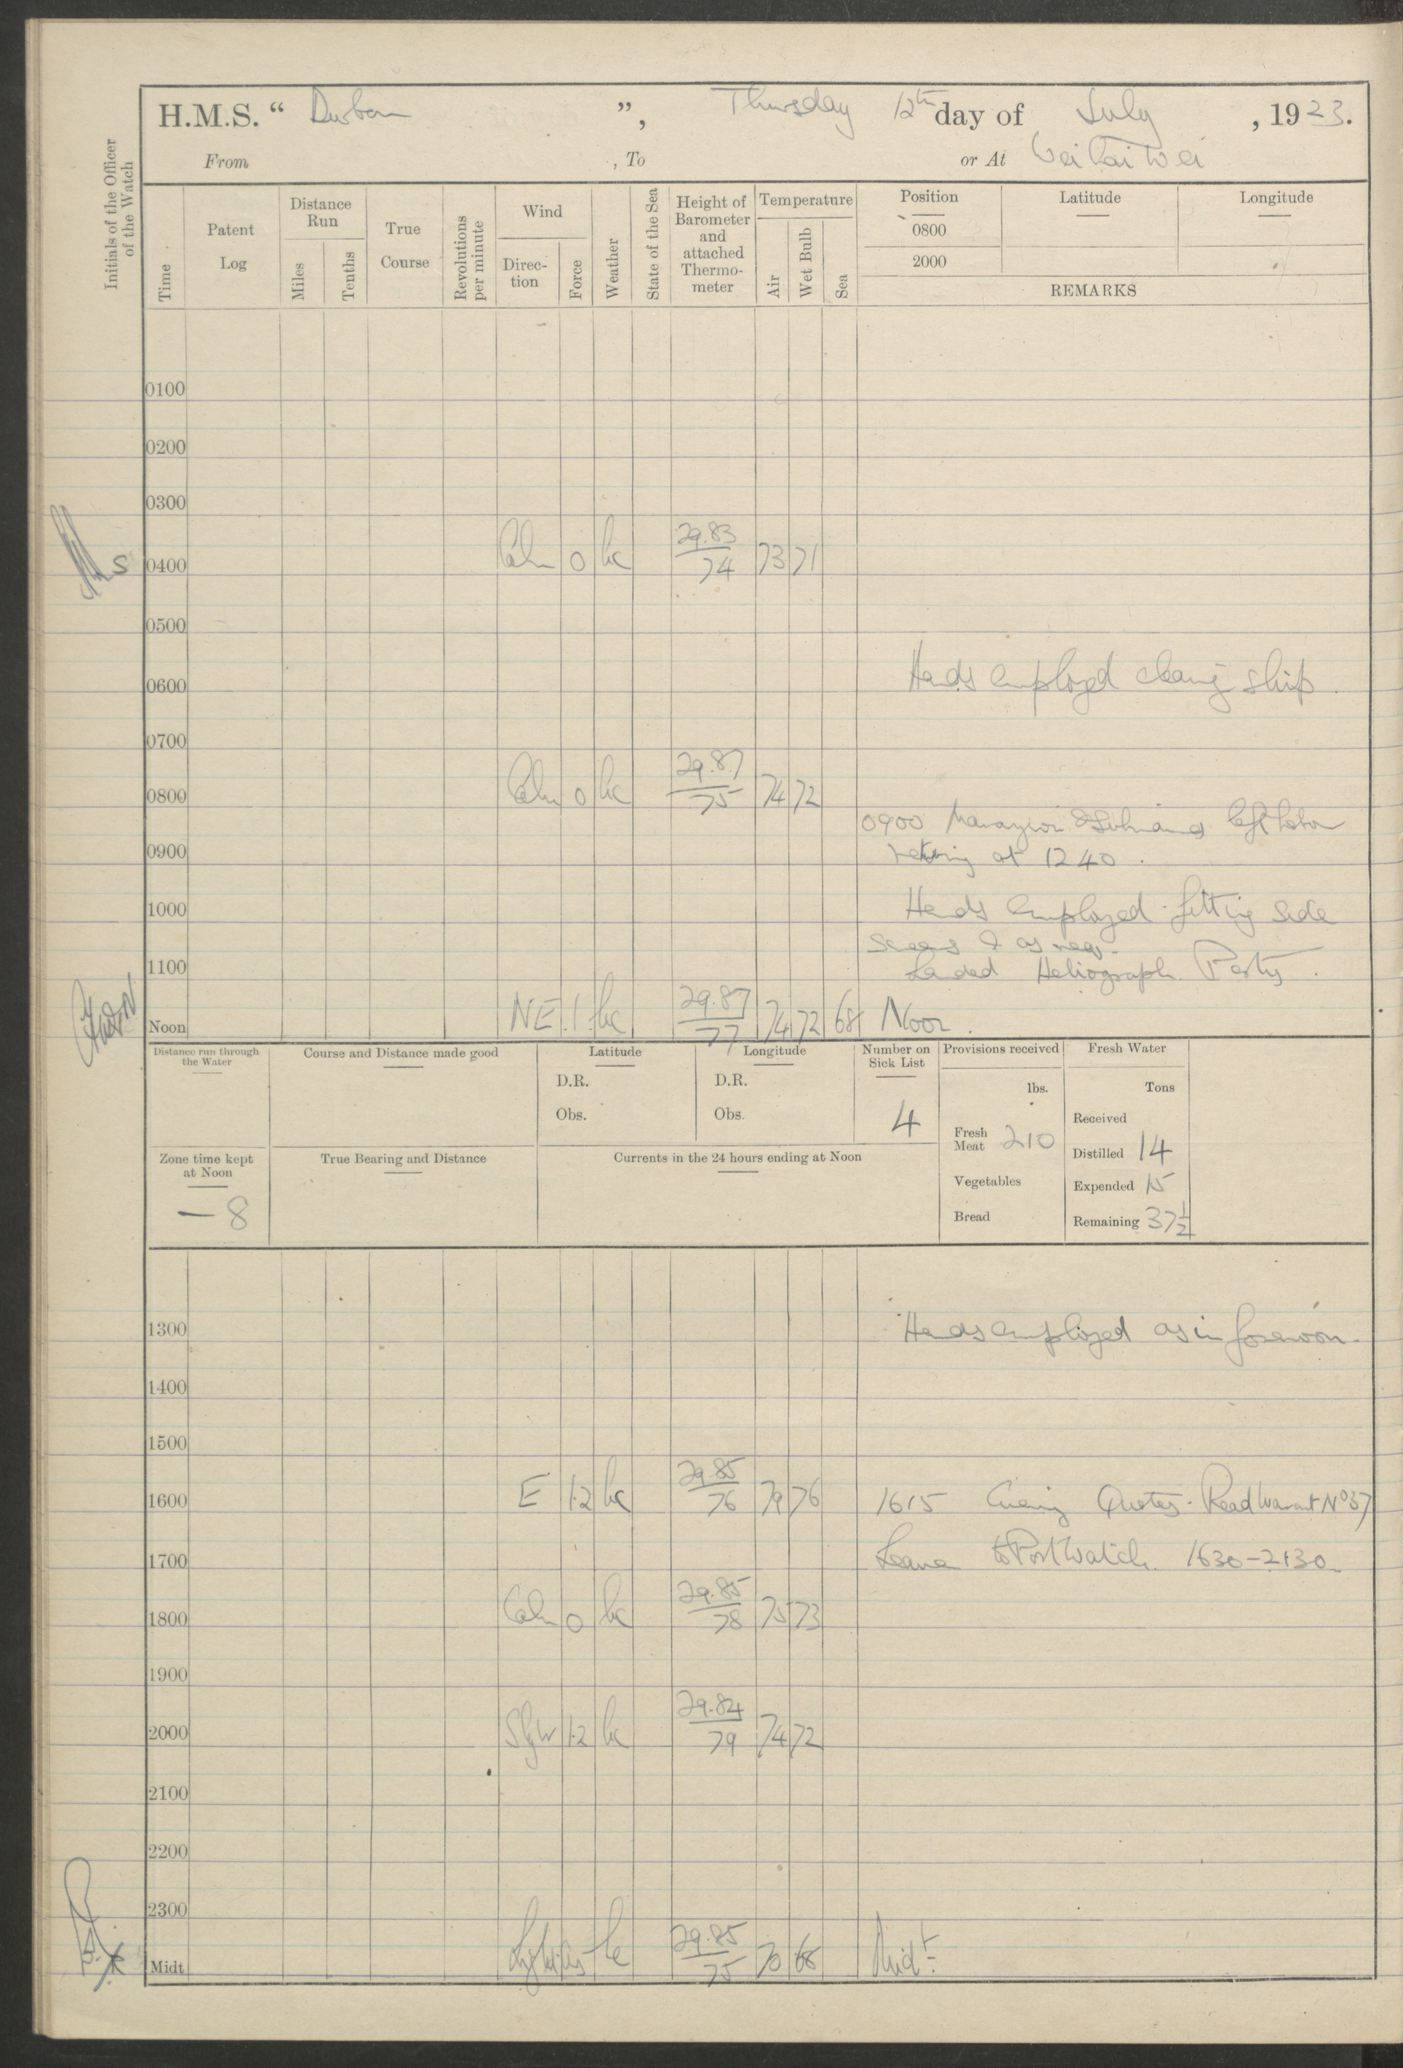 H.M.S. “ Durban ”, Thursday 12th day of July, 1923.
From , To or At Wei Hai Wei
Initials of the Officer of the Watch
Time
Patent Log
Distance Run
Miles
Tenths
True Course
Revolutions per minute
Wind
Direc-tion
Force
Weather
State of the Sea
Height of Barometer and attached Thermo-meter
Temperature
Air
Wet Bulb
Sea
Position Latitude Longitude
0800
2000
REMARKS
0100
0200
0300
0400 Calm 0 bc 29.83 / 74 73 71
0500
0600 Hands employed cleaning ship.
0700
0800 Calm 0 bc 29.87 / 75 74 72
0900 Marazion & Submarines left harbour
0900 returning at 1240.
1000 Hands employed fitting side
screens & as req.
1100 Landed Heliograph Party.
Noon NE 1 bc 29.87 / 77 74 72 68 Noon.
Distance run through the Water
Course and Distance made good
Latitude
D.R.
Obs.
Longitude
D.R.
Obs.
Number on Sick List
4
Provisions received
lbs.
Fresh Meat 210
Vegetables
Bread
Fresh Water
Tons
Received
Distilled 14
Expended 15
Remaining 37½
Zone time kept at Noon
— 8
True Bearing and Distance
Currents in the 24 hours ending at Noon
1300 Hands employed as in forenoon.
1400
1500
1600 E 1.2 bc 29.85 / 76 79 76 1615 Evening Quarters. Read Warrant No 37
1700 Leave to Port Watch 1630–2130
1800 Calm 0 bc 29.85 / 78 75 73
1900
2000 SbyW 1.2 bc 29.84 / 79 74 72
2100
2200
2300
Midt Light airs bc 29.85 / 75 70 68 Midt.